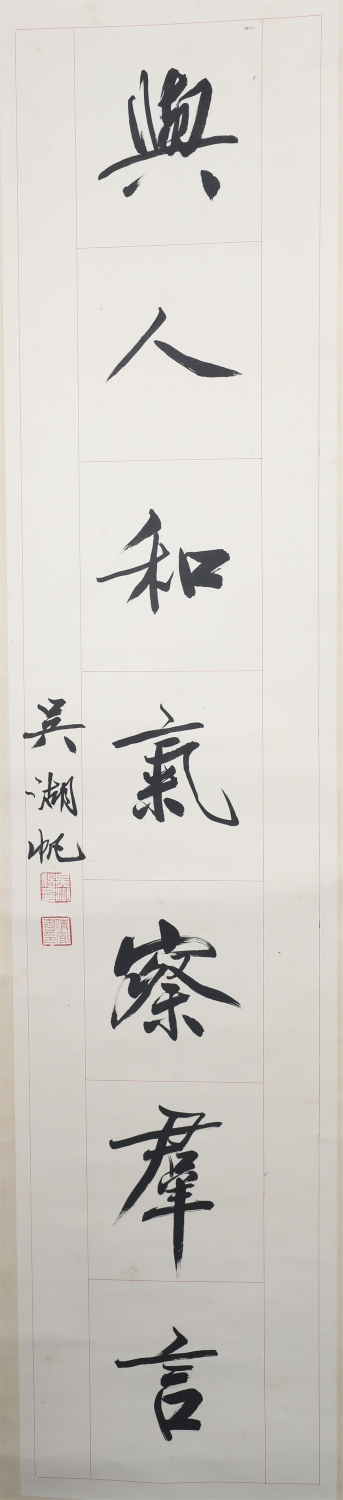 與人和氣察羣言
吳湖帆